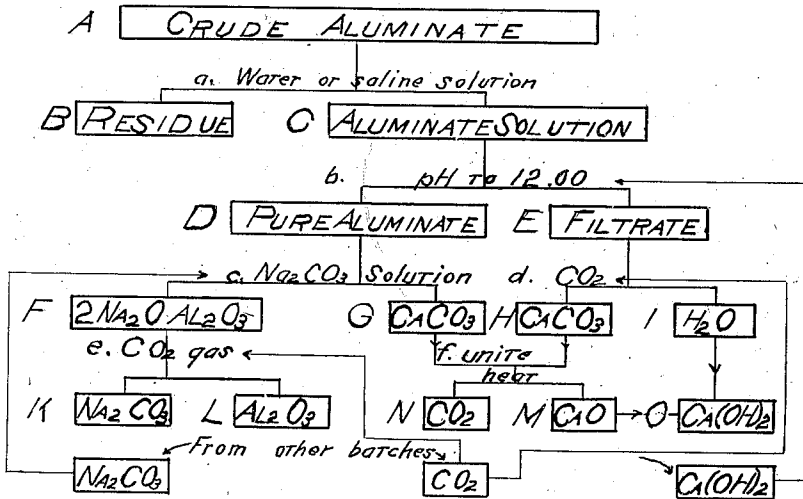 A CRUDE ALUMINATE
a. Water or saline solution
B RESIDUE C ALUMINATE SOLUTION
b. pH TO 12.00
D PURE ALUMINATE E FILTRATE
c. Na2CO3 Solution d. CO2
F 2NA2O AL2O3 G CACO3 H CACO3 I H2O
e. CO2 gas f. unite
heat
K NA2CO3 L AL2O3 N CO2 M CAO O CA(OH)2
From other batches
NA2CO3 CO2 CA(OH)2